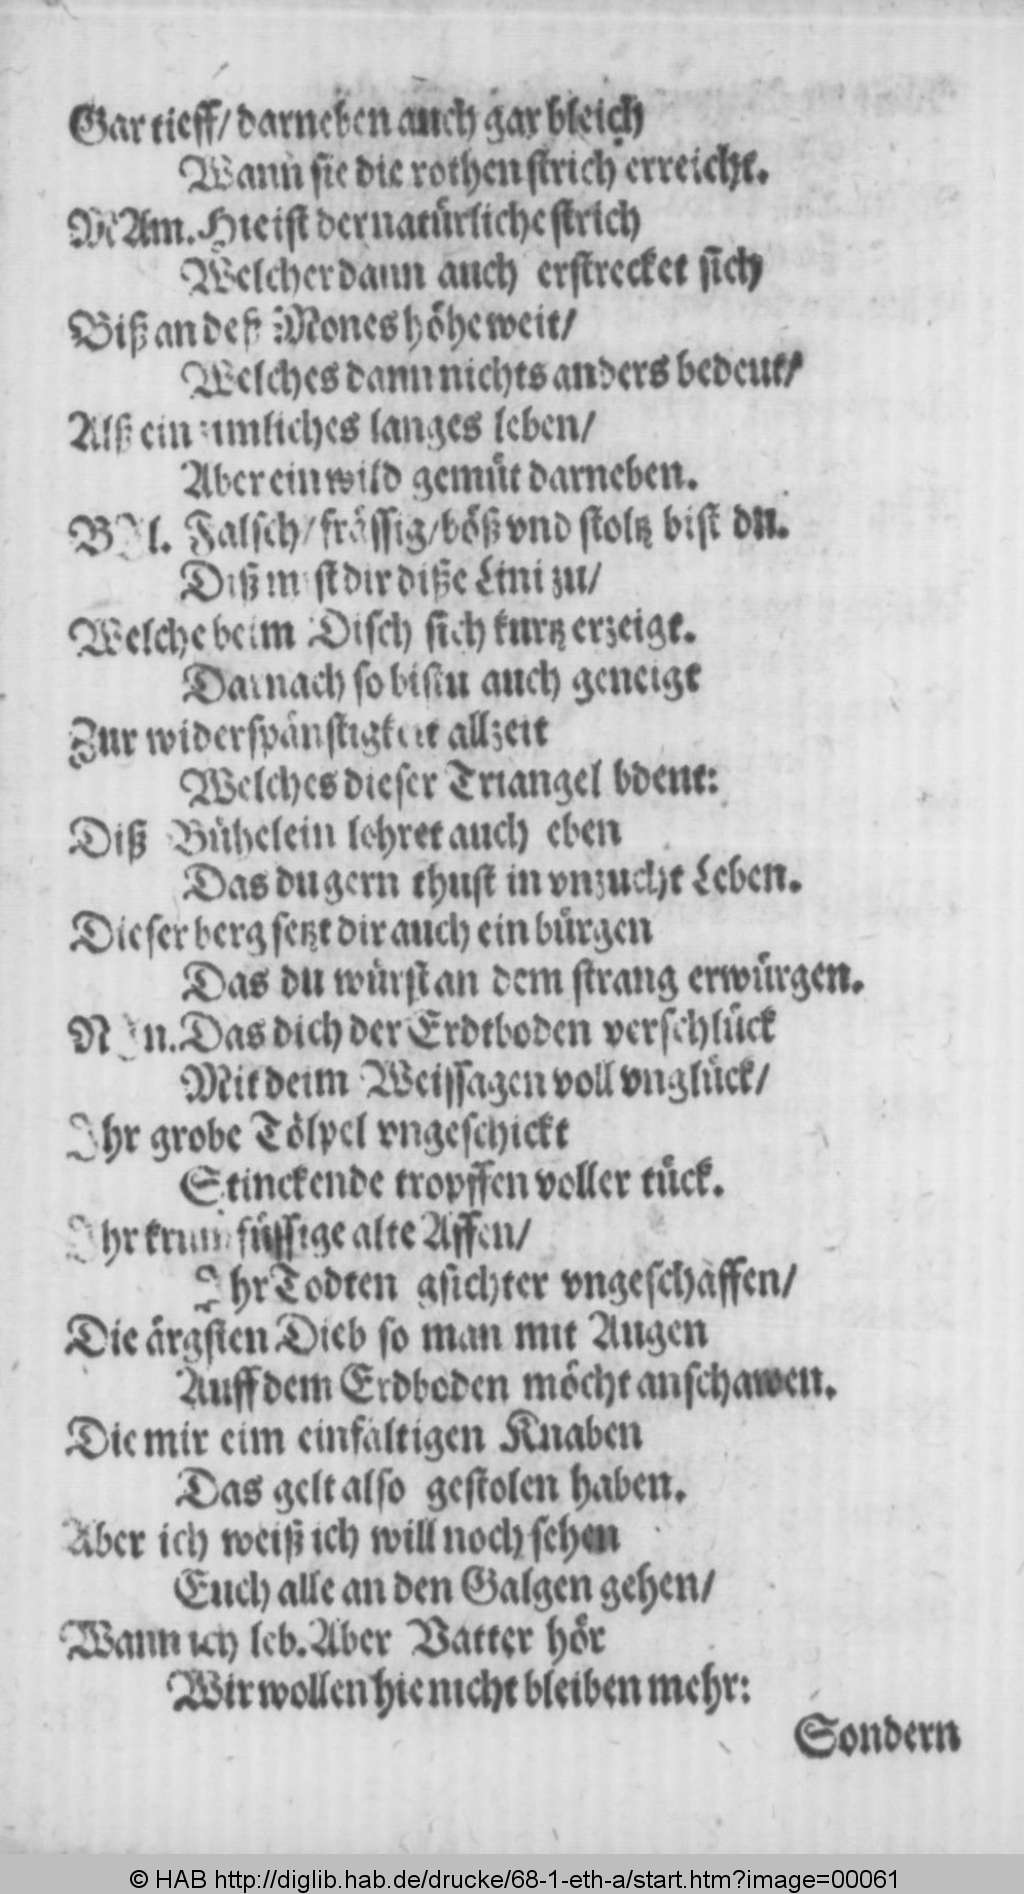 Gar tieff/ darneben auch gar bleich
Wann sie die rothen strich erreicht.
MAm. Hie ist der natürliche strich
Welcher dann auch erstrecket sich
Biß an deß Mones höhe weit/
Welches dann nichts anders bedeut/
Alß ein zimliches langes leben/
Aber ein wild gemüt darneben.
BIl. Falsch/ frässig/ böß vnd stoltz bist du.
Diß mist dir diße Lini zu/
Welche beim Disch sich kurtz erzeigt.
Darnach so bistu auch geneigt
Zur widerspänstigkeit allzeit
Welches dieser Triangel bdeut:
Diß Bühelein lehret auch eben
Das du gern thust in vnzucht Leben.
Dieser berg setzt dir auch ein bürgen
Das du würst an dem strang erwürgen.
NIn. Das dich der Erdtboden verschlück
Mit deim Weissagen voll vnglück/
Ihr grobe Tölpel vngeschickt
Stinckende tropffen voller tück.
Ihr krumfüssige alte Affen/
Ihr Todten gsichter vngeschaffen/
Die ärgsten Dieb so man mit Augen
Auff dem Erdboden möcht anschawen.
Die mir eim einfaltigen Knaben
Das gelt also gestolen haben.
Aber ich weiß ich will noch sehen
Euch alle an den Galgen gehen/
Wann ich leb. Aber Vatter hör
Wir wollen hie nicht bleiben mehr:
Sondern
© HAB http://diglib.hab.de/drucke/68-1-eth-a/start.htm?image=00061